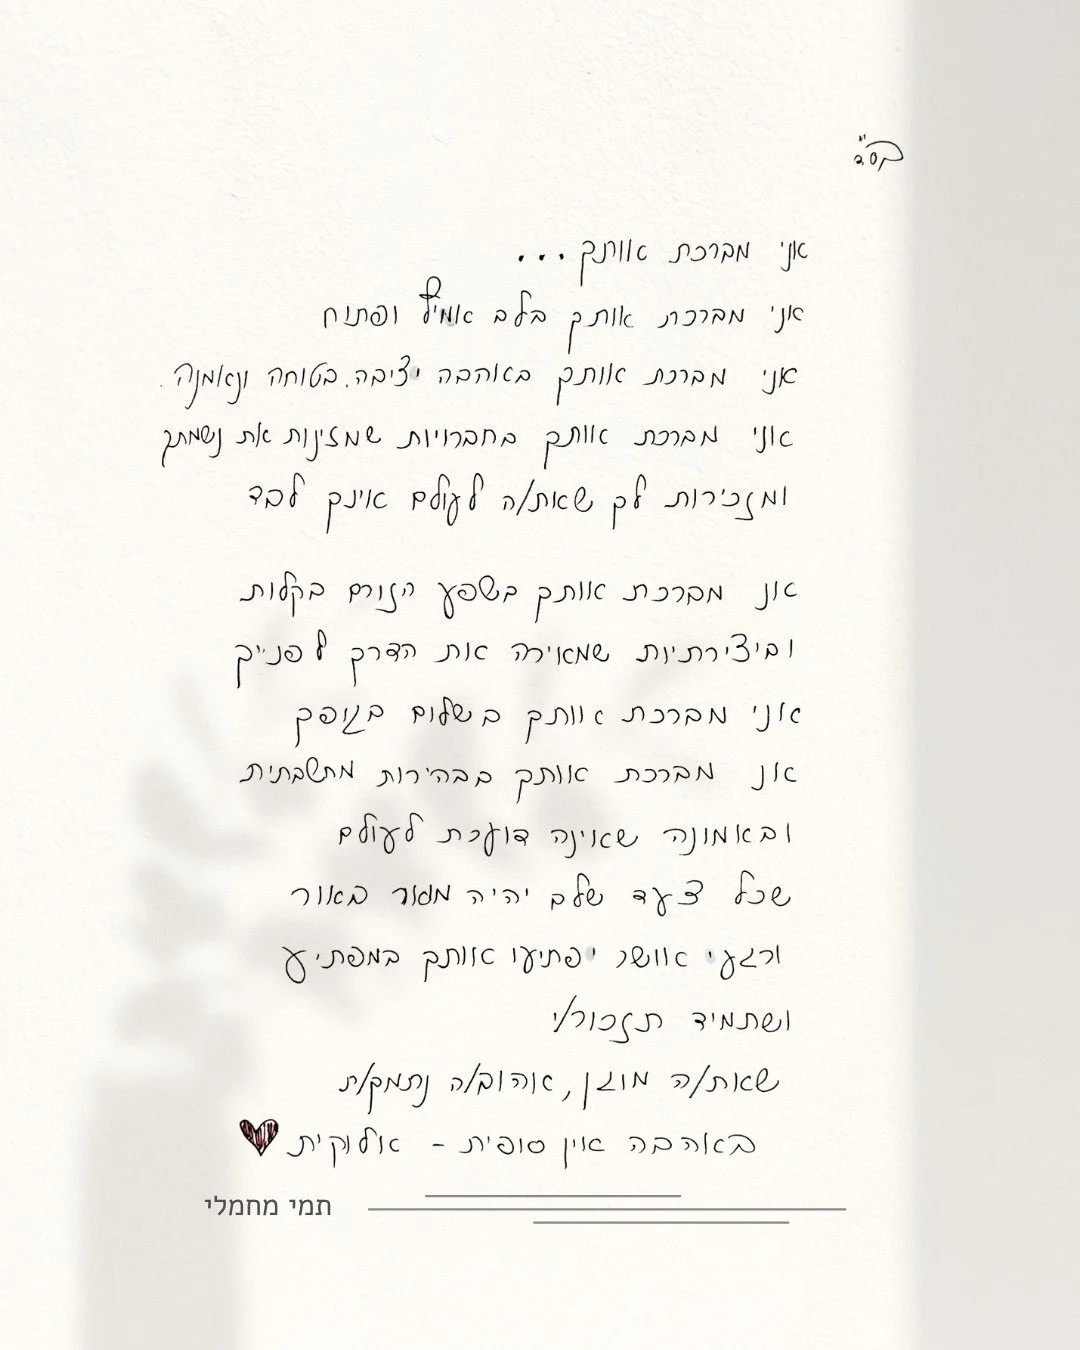 בס"ד
אני מברכת אותך...
אני מברכת אותך בלב אמיץ ופתוח
אני מברכת אותך באהבה יציבה, בטוחה ונאמנה.
אני מברכת אותך בחברויות שמזינות את נשמתך
ומזכירות לך שאת/ה לעולם אינך לבד
אני מברכת אותך בשפע הזורם בקלות
וביצירתיות שמאירה את הדרך לפנייך
אני מברכת אותך בשלום בגופך
אני מברכת אותך בבהירות מחשבתית
ובאמונה שאינה דועכת לעולם
שכל צעד שלך יהיה מואר באור
ורגעי אושר יפתיעו אותך במפתיע
ושתמיד תזכור/י
שאת/ה מוגן, אהוב/ה נתמך/ת
באהבה אין סופית - אלוקית
תמי מחמלי